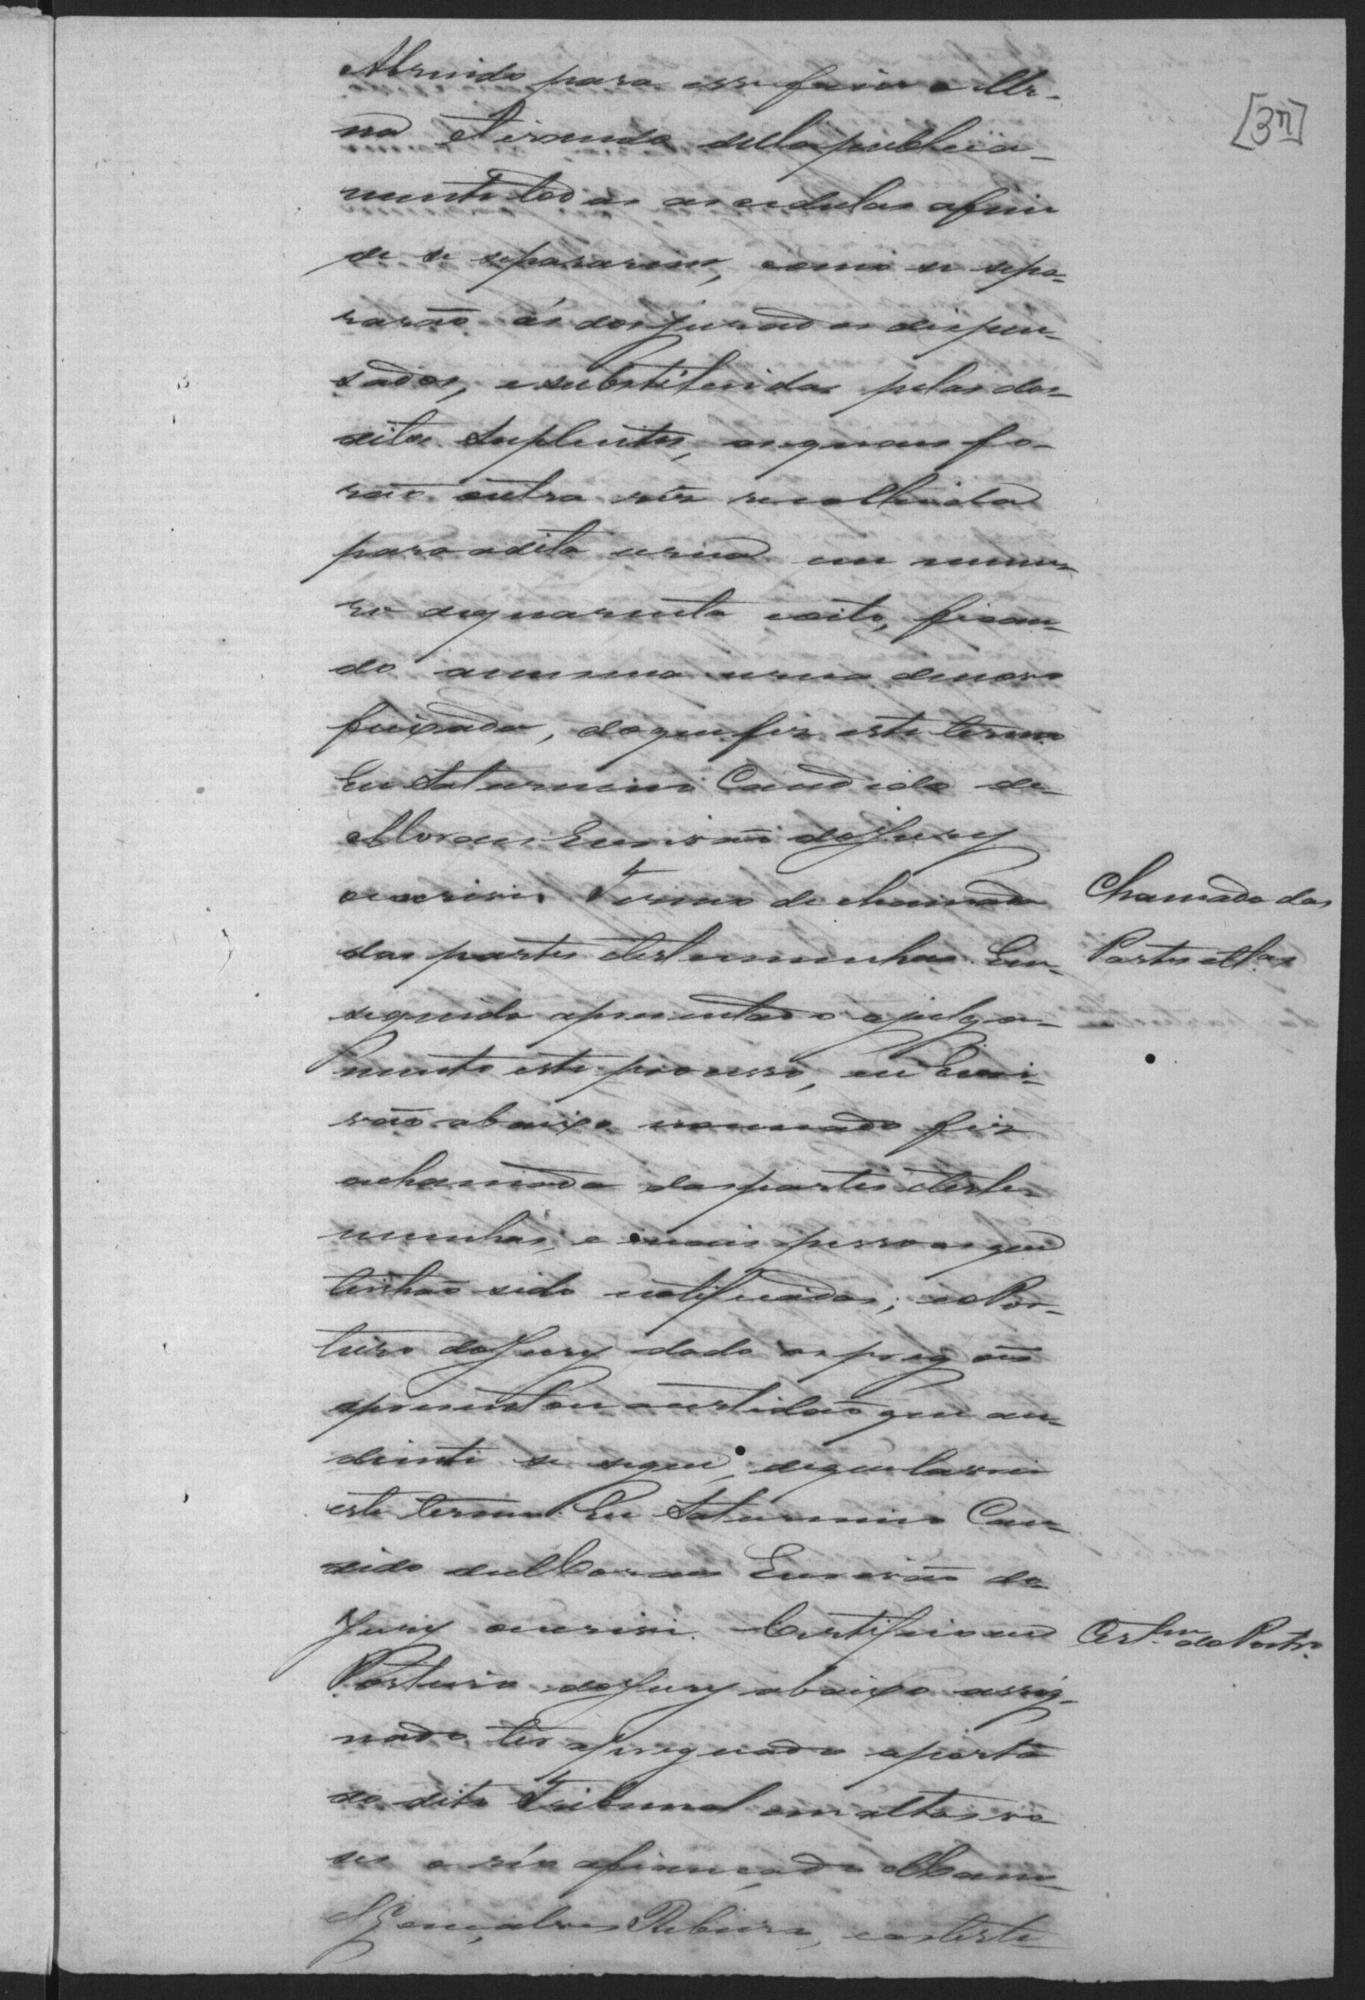 [3r]
Abrindo para esse fim a Ur-
na e tirando della publica-
mente todas as cedulas afim
de se separarem, como se sepa-
rarão ás dos jurados dispen-
sados, e substituidas pelas dos
oito Suplentes, as quaes fo-
rão outra vez recolhida
para a dita urna em nume-
ro de quarenta e oito, fican-
do a mesma urna de novo
feixada, do que fiz este termo
Eu Saturnino Candido de
Moraes Escrivão do Jury
o escrivi. Termo de chamada
das partes e testemunhas. Em
seguida apresentado a julga-
mento este processo, eu Escri-
vão abaixo nomeado fiz
a chamada das partes e teste-
munhas, e mais pessoas que
tinhão sido notificadas; e o Por-
teiro do Jury dado os pregões
apresentou a certidão que au-
diante se segue; de que lavrei
este termo. Eu Saturnino Can-
dido de Moraes Escrivão do
Jury o escrivi. Certifico eu
Porteiro do Jury abaixo assig-
nado ter apregoado a porta
do dito Tribunal em altas vo-
ses o réo afiançado Mano
el Gonçalves Ribeiro, e as teste
Chamada das
Partes e tt.as
Cert.am do Portr.o